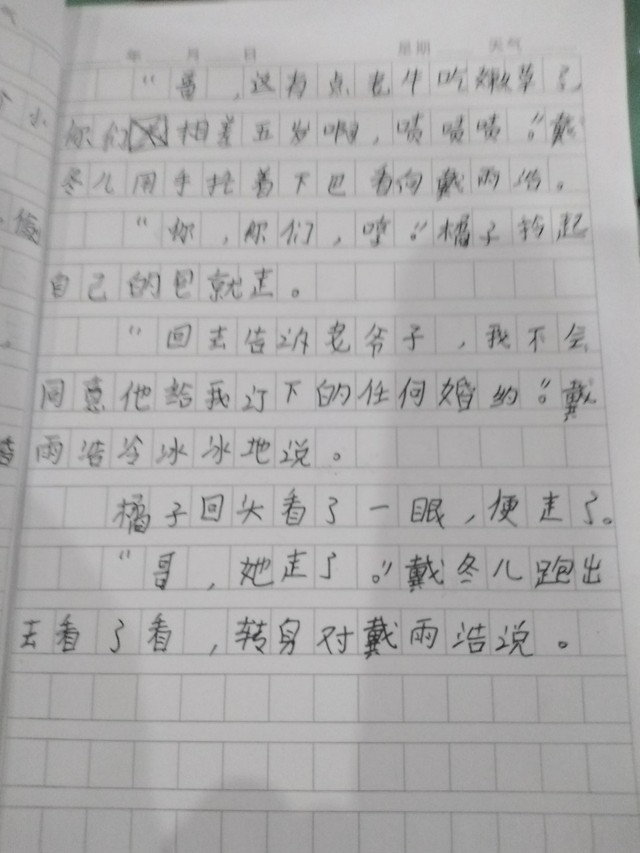 年 月 日 星期 天气
“哥，这有点老牛吃嫩草了，
你们相差五岁啊，啧啧啧。”戴
冬儿用手托着下巴看向戴雨浩。
“你，你们，哼。”橘子拎起
自己的包就走。
“回去告诉老爷子，我不会
同意他给我订下的任何婚约。”戴
雨浩冷冰冰地说。
橘子回头看了一眼，便走了。
“哥，她走了。”戴冬儿跑出
去看了看，转身对戴雨浩说。